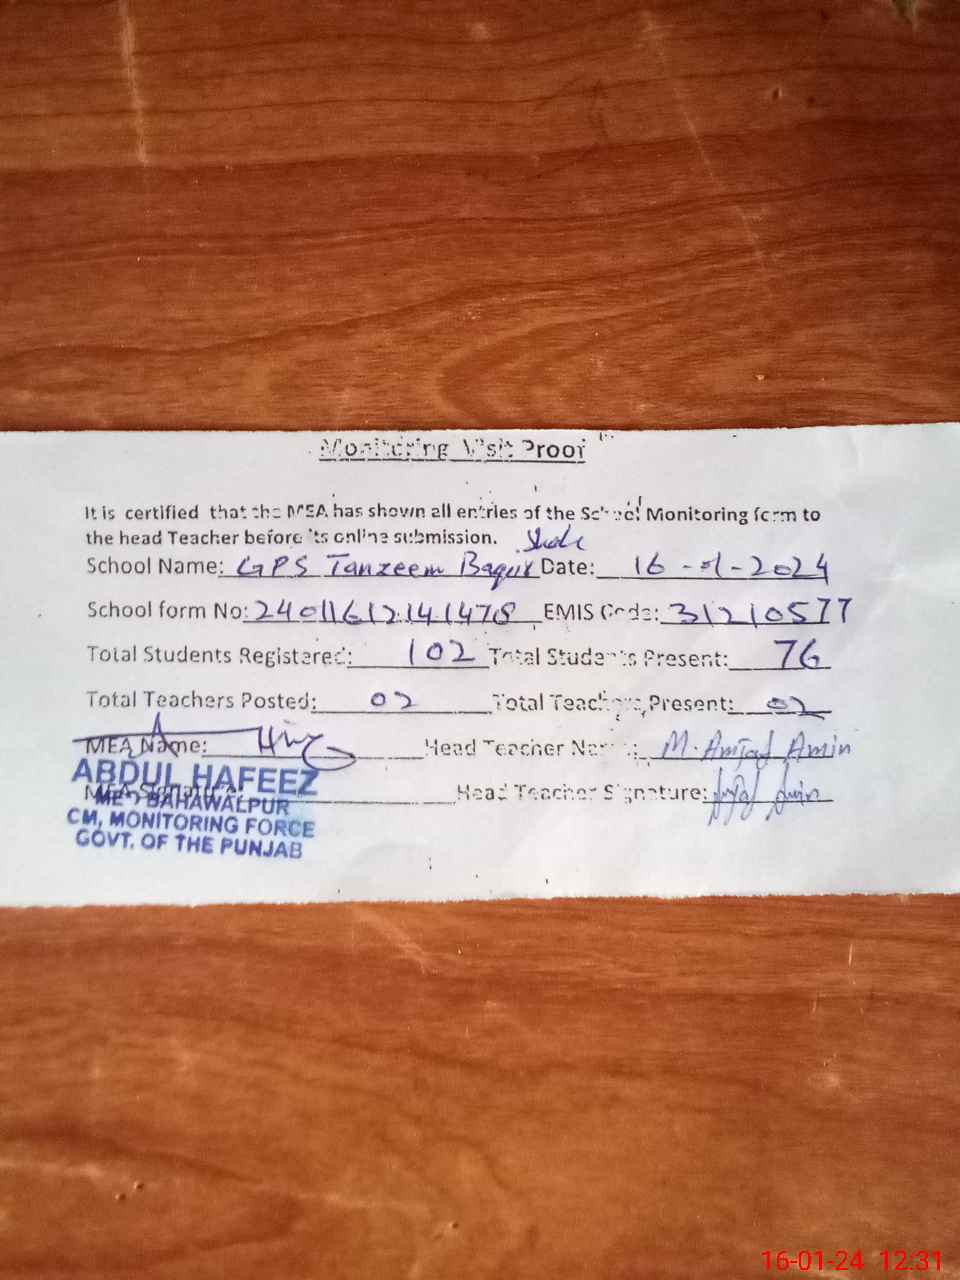 Monitoring Visit Proof
It is certified that the MEA has shown all entries of the School Monitoring form to
the head Teacher before its online submission.
School Name: GPS Tanzeem Date: 16-01-2024
School form No: 24011612141478 EMIS Code: 31210577
Total Students Registered: 102 Total Students Present: 76
Total Teachers Posted: 02 Total Teachers Present: 02
MEA Name: Head Teacher Name: M. Amjad Amin
ABDUL HAFEEZ
MEA Signature: Head Teacher Signature: Amjad Amin
MEA BAHAWALPUR
CM, MONITORING FORCE
GOVT. OF THE PUNJAB
16-01-24 12:31